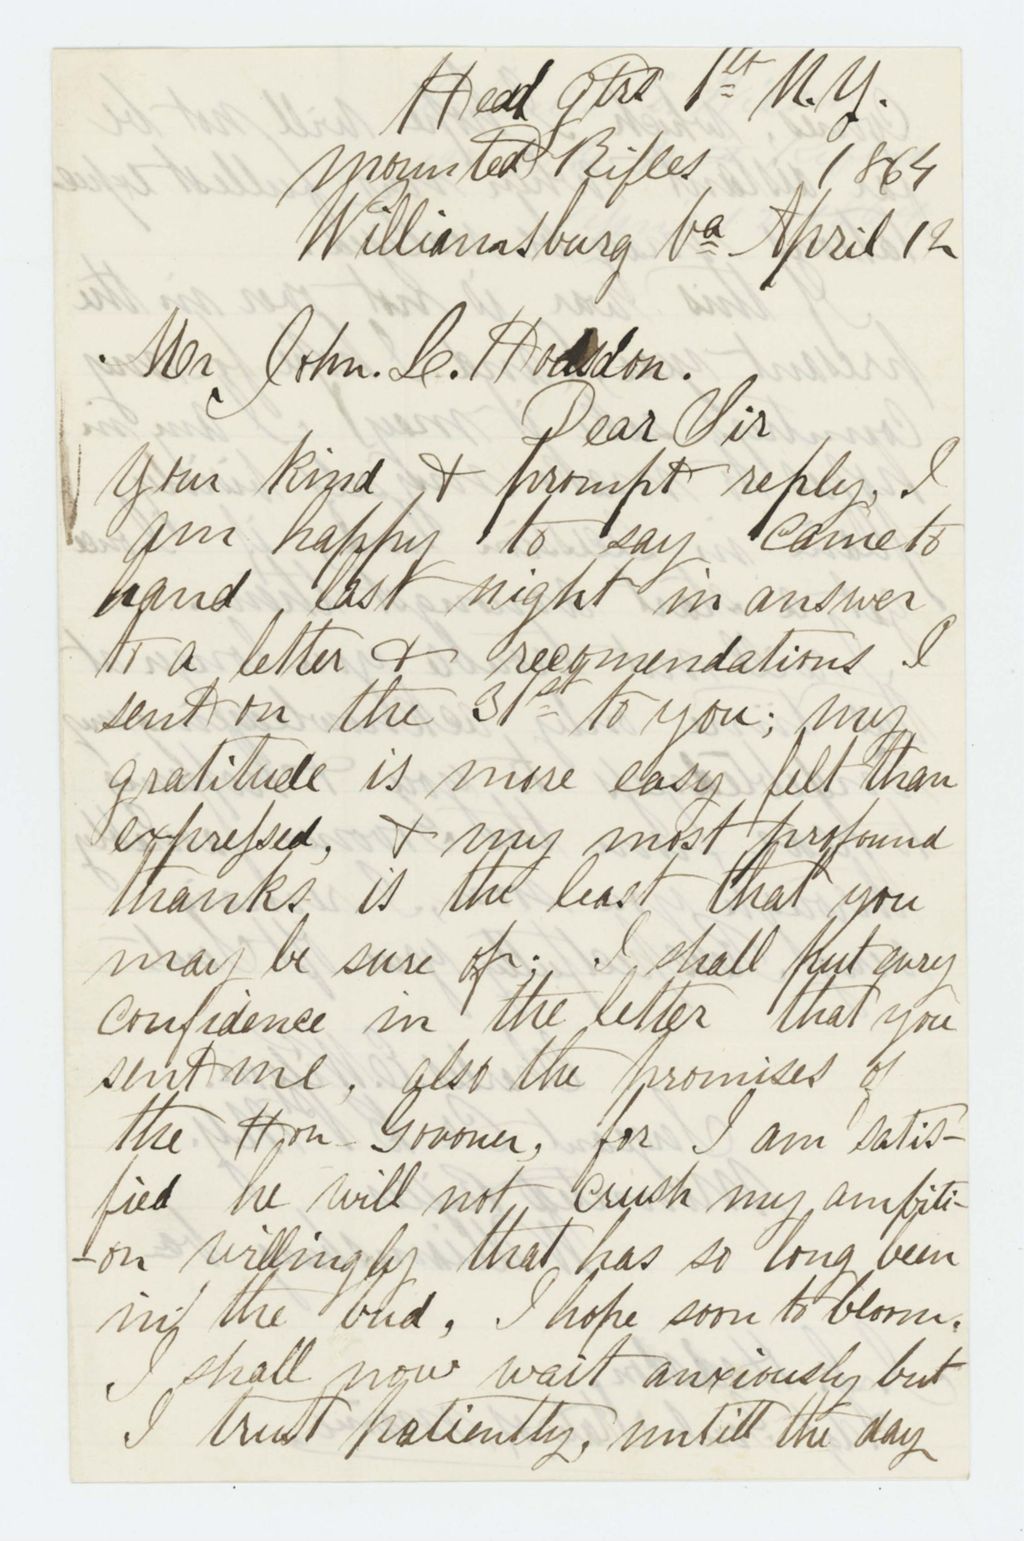 Head qtrs 1st N.Y.
Mounted Rifles 1864
Williamsburg Va April 12
Mr John. L. Hodsdon.
Dear Sir
Your kind & prompt reply, I
am happy to say came to
hand last night in answer
to a letter & recomendations I
sent on the 31st to you; my
gratitude is more easy felt than
expressed, & my most profound
thanks is the least that you
may be sure of. I shall put every
confidence in the letter that you
sent me, also the promises of
the Hon Govoner, for I am satis-
fied he will not crush my ambiti-
-on willingly that has so long been
in the bud, I hope soon to bloom.
I shall now wait anxiously but
I trust patiently, untill the day